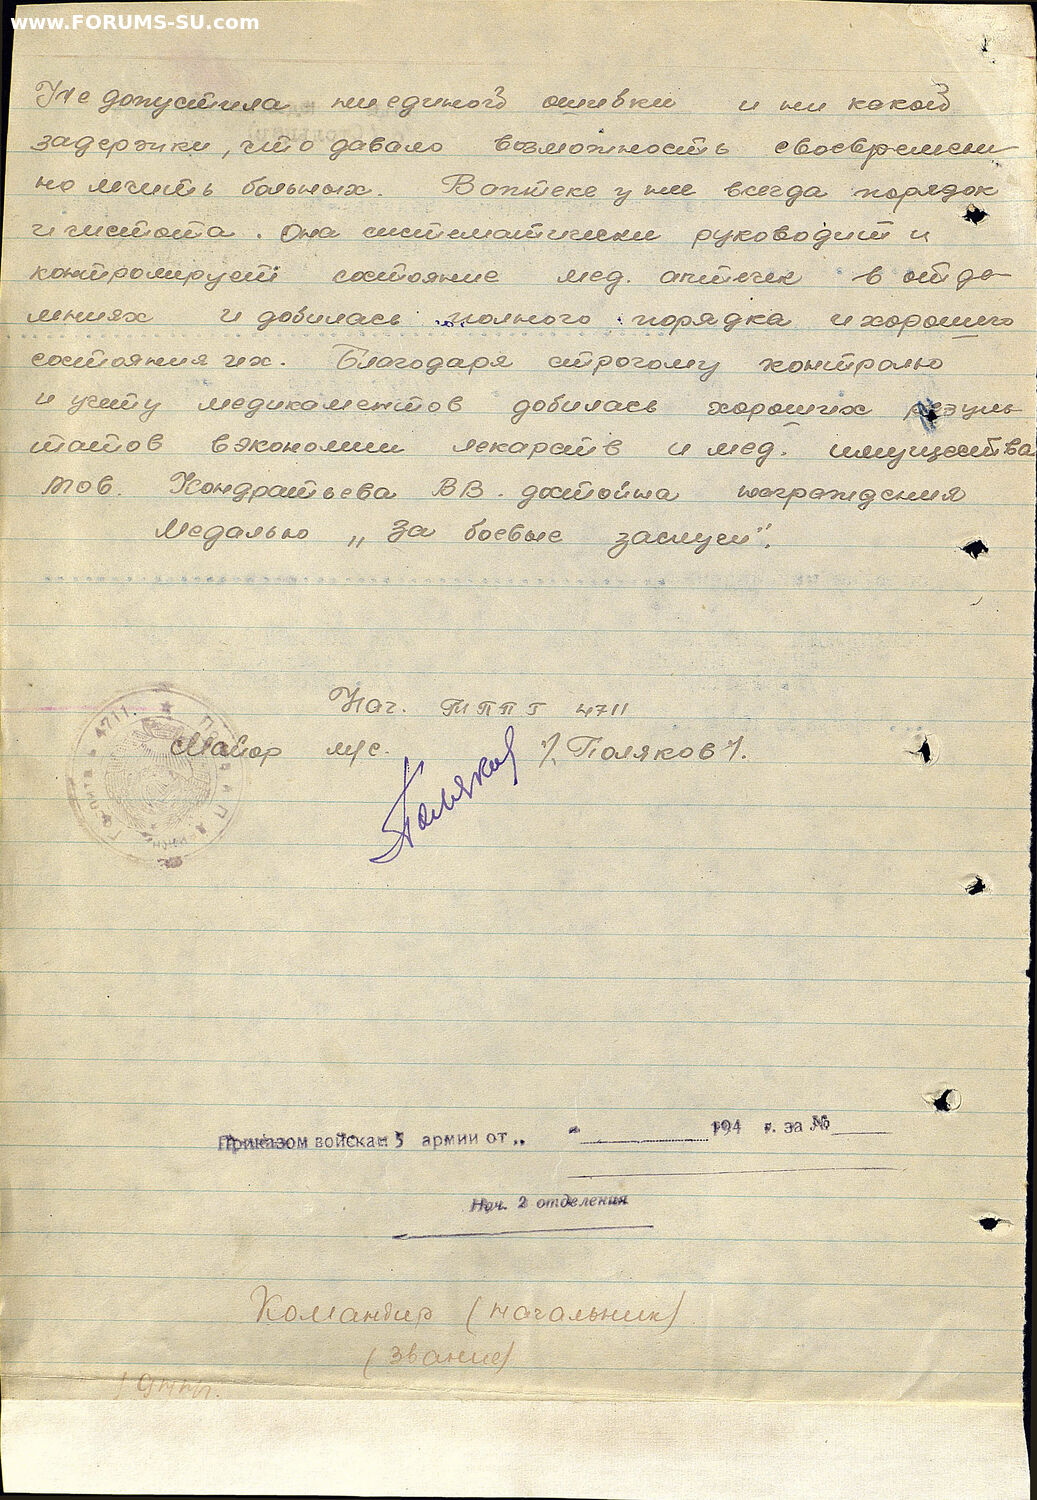 www.FORUMS-SU.com
Не допустила ни единой ошибки и ни какой
задержки, что давало возможность своевремен
но лечить больных. В аптеке у ни всегда порядок
и чистота. Она систематически руководит и
контролирует состояние мед. аптечек в отде-
лениях и добилась полного порядка и хорошего
состояния их. Благодаря строгому контролю
и учету медикаментов добилась хороших резуль
татов в экономии лекарств и мед. имущества
тов. Кондратьева В В. достойна награждения
Медалью „За боевые заслуги".
Нач. ТППГ 4711
Майор м/с. /Поляков/.
Поляков
4711
Госпиталь
Приказом войскам 5 армии от „ " 194 г. за №
Нач. 2 отделения
Командир (начальник)
(звание)